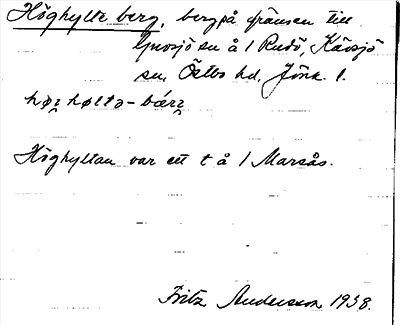 Höghylte berg, berg på gränsen till
Gnosjö sn å 1 Rudö, Kävsjö
sn, Östbo hd, Jönk. l.
Höghyltan var ett t å 1 Marsås.
Fritz Andersson 1938.